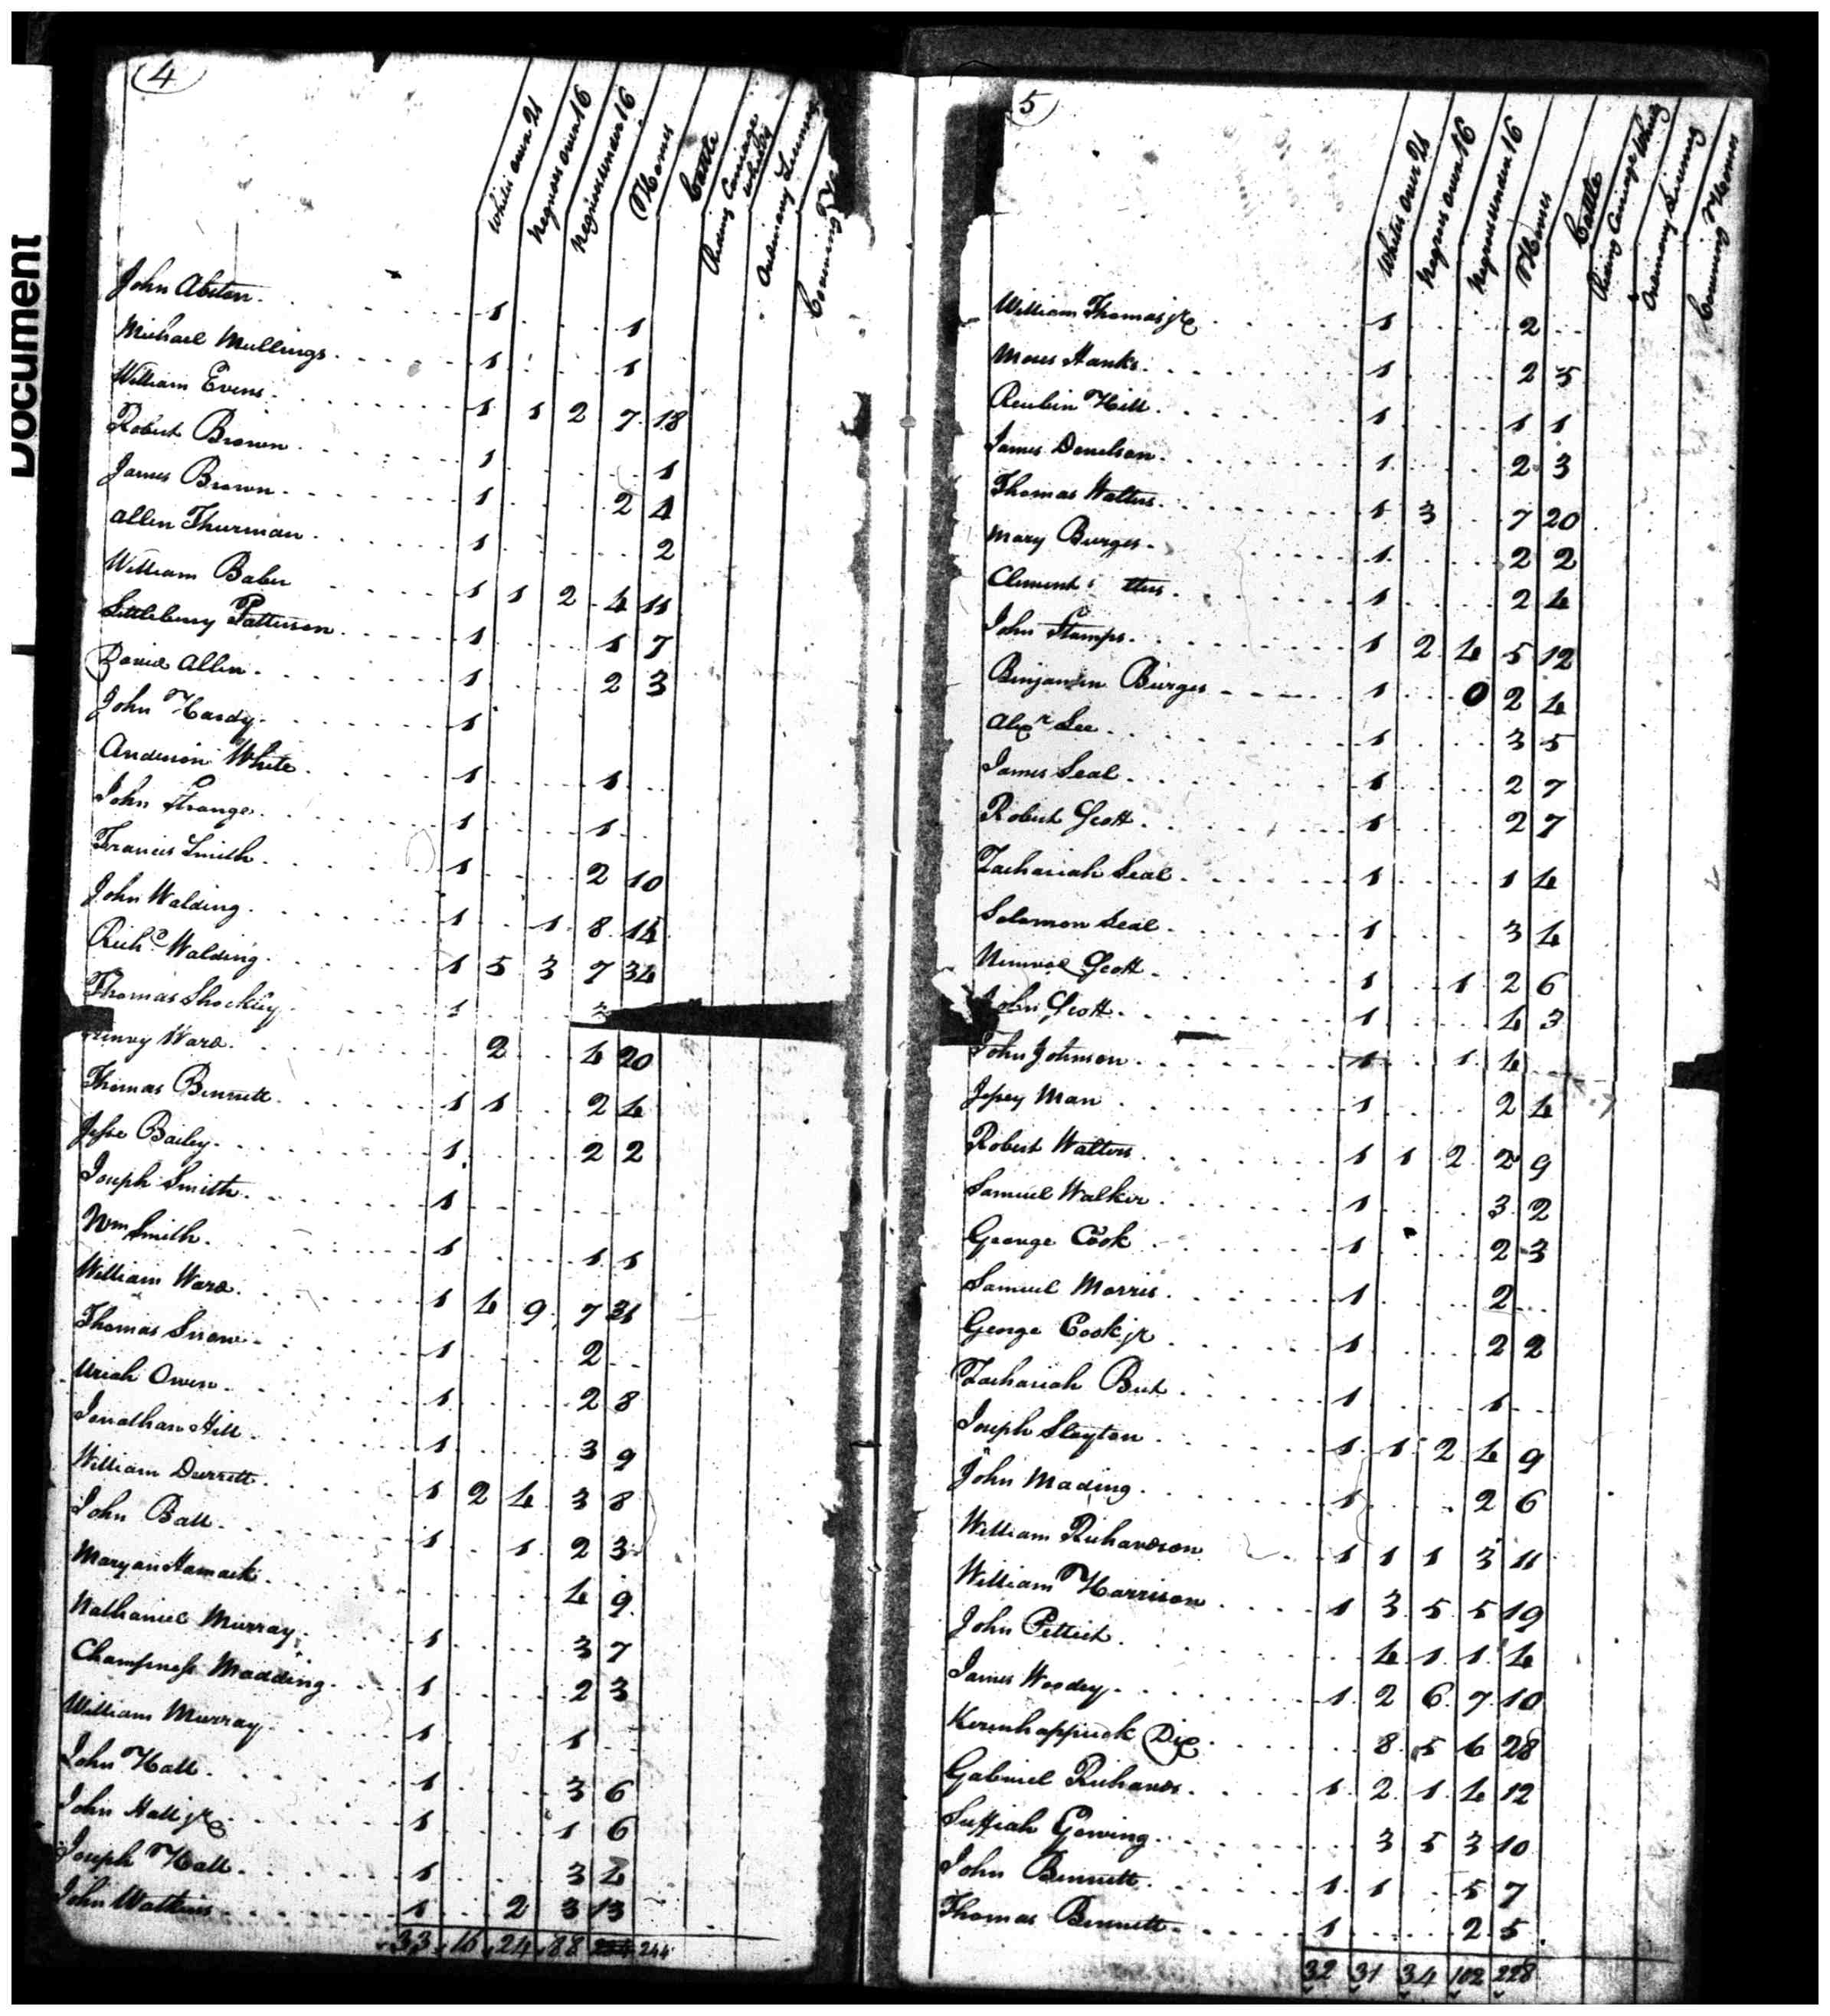 Document
4
Whites over 21
Negroes over 16
Negroes under 16
Horses
Cattle
Riding Carriage Wheels
Ordinary License
Covering
John Abston 1 1
Michael Mullings 1 1
William Evens 1 1 2 7 18
Robert Brown 1 1
James Brown 1 2 4
Allen Thurman 1 2
William Baber 1 1 2 4 11
Littlebury Patterson 1 1 7
David Allen 1 2 3
John Hardy 1
Anderson White 1 1
John Strange 1 1
Francis Smith 1 2 10
John Walding 1 1 8 14
Richd Walding 1 5 3 7 34
Thomas Shockley 1
Henry Ward 2 4 20
Thomas Bennett 1 1 2 4
Jesse Bailey 1 2 2
Joseph Smith 1
Wm Smith 1 1 1
William Ward 1 4 9 7 31
Thomas Snow 1 2
Uriah Owen 1 2 8
Jonathan Hill 1 3 9
William Durrett 1 2 4 3 8
John Ball 1 1 2 3
Maryan Hamack 4 9
Nathaniel Murray 1 3 7
Champness Madding 1 2 3
William Murray 1 1
John Hall 1 3 6
John Hall jr 1 1 6
Joseph Hall 1 3
John Watkins 1 2 3 13
33 16 24 88 244
5
Whites over 21
Negroes over 16
Negroes under 16
Horses
Cattle
Riding Carriage Wheels
Ordinary License
Covering Horses
William Thomas jr 1 2
Moses Hanks 1 2 5
Reubin Hill 1 1 1
James Donelson 1 2 3
Thomas Walters 1 3 7 20
Mary Burges 1 2 2
Clement 1 2 4
John Stamps 1 2 4 5 12
Binjamin Burges 1 0 2 4
Alexr Lee 1 3 5
James Seal 1 2 7
Robert Scott 1 2 7
Zachariah Seal 1 1 4
Solomon Seal 1 3 4
Nimrod Scott 1 1 2 6
John Scott 1 4 3
John Johnson 1 1 4
Jessey Man 1 2 4
Robert Walters 1 1 2 2 9
Samuel Walker 1 3 2
George Cook 1 2 3
Samuel Morris 1 2
George Cook jr 1 2 2
Zachariah 1 1
Joseph Slayton 1 1 2 4 9
John Mading 1 2 6
William Richardson 1 1 1 3 11
William Harrison 1 3 5 5 19
John 4 1 1 4
James Woodey 1 2 6 7 10
Kerenhappuck Dix 8 5 6 28
Gabriel Richards 1 2 1 4 12
Suffiah Gowing 3 5 3 10
John Bennett 1 1 5 7
Thomas Bennett 1 2 5
32 31 34 102 228